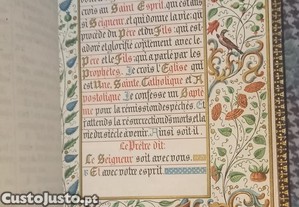 crois au Saint Esprit, qui est aus
si Seigneur et qui donne la vie: qui
procède du Père et du Fils: qui est
adoré et glorifié conjointement avec le
Père et le Fils: qui a parlé par les
Prophètes. Je crois l'Eglise qui
est Une, Sainte, Catholique et A
postolique. Je confesse un Baptê
me pour la rémission des péchés. Et
j'attends la résurrection des morts et la
vie du siècle à venir. Ainsi soit-il.
Le Prêtre dit:
Le Seigneur soit avec vous.
Et avec votre esprit.
CustoJusto.pt